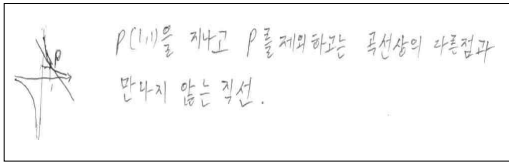 P
P(1,1)을 지나고 P를 제외하고는 곡선상의 다른점과
만나지 않는 직선.